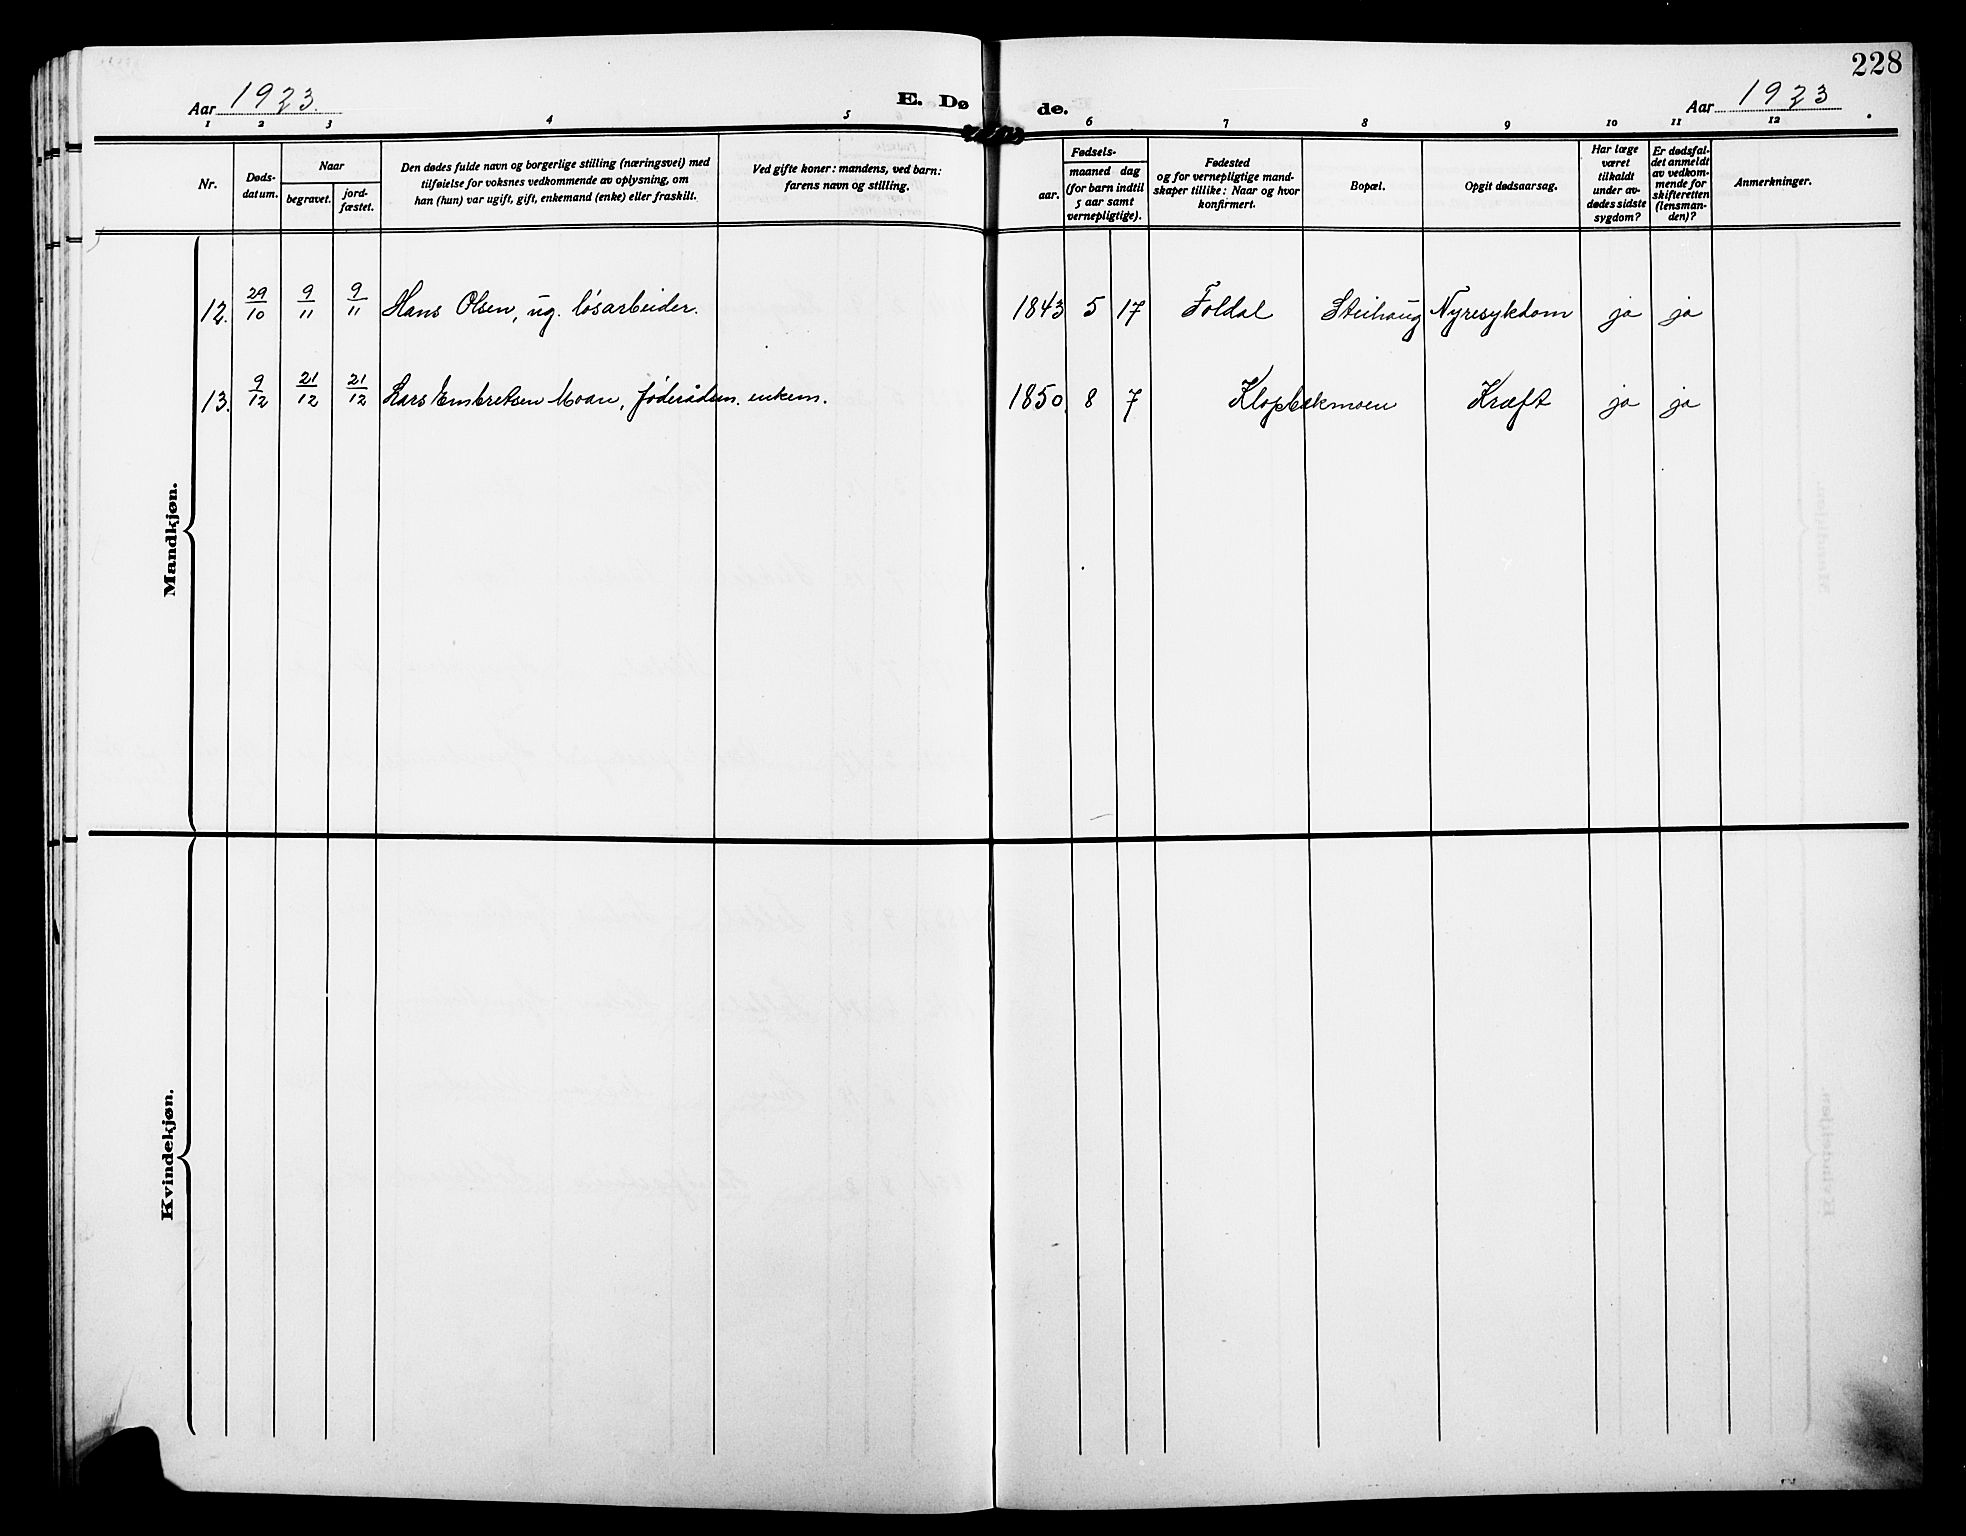 228
Aar 1923.
E. Dø
de.
Aar 1923
1 2 3 4 5 6 7 8 9 10 11 12
Nr.
Døds-
datum.
Naar
begravet.
jord-
fæstet.
Den dødes fulde navn og borgerlige stilling (næringsvei) med
tilføielse for voksnes vedkommende av oplysning, om
han (hun) var ugift, gift, enkemand (enke) eller fraskilt.
Ved gifte koner: mandens, ved barn:
farens navn og stilling.
Fødsels-
aar.
maaned dag
(for barn indtil
5 aar samt
vernepligtige).
Fødested
og for vernepligtige mand-
skaper tillike: Naar og hvor
konfirmert.
Bopæl.
Opgit dødsaarsag.
Har læge
været
tilkaldt
under av-
dødes sidste
sygdom?
Er dødsfal-
det anmeldt
av vedkom-
mende for
skifteretten
(lensman-
den)?
Anmerkninger.
Mandkjøn.
12. 29/10 9/11 9/11 Hans Olsen, ug. løsarbeider. 1843 5 17 Foldal Steihaug Nyresykdom ja ja
13. 9/12 21/12 21/12 Lars Embretsen Moan, føderådsm. enkem. 1850. 8 7 Klopbekmoen Kræft ja ja
Kvindekjøn.